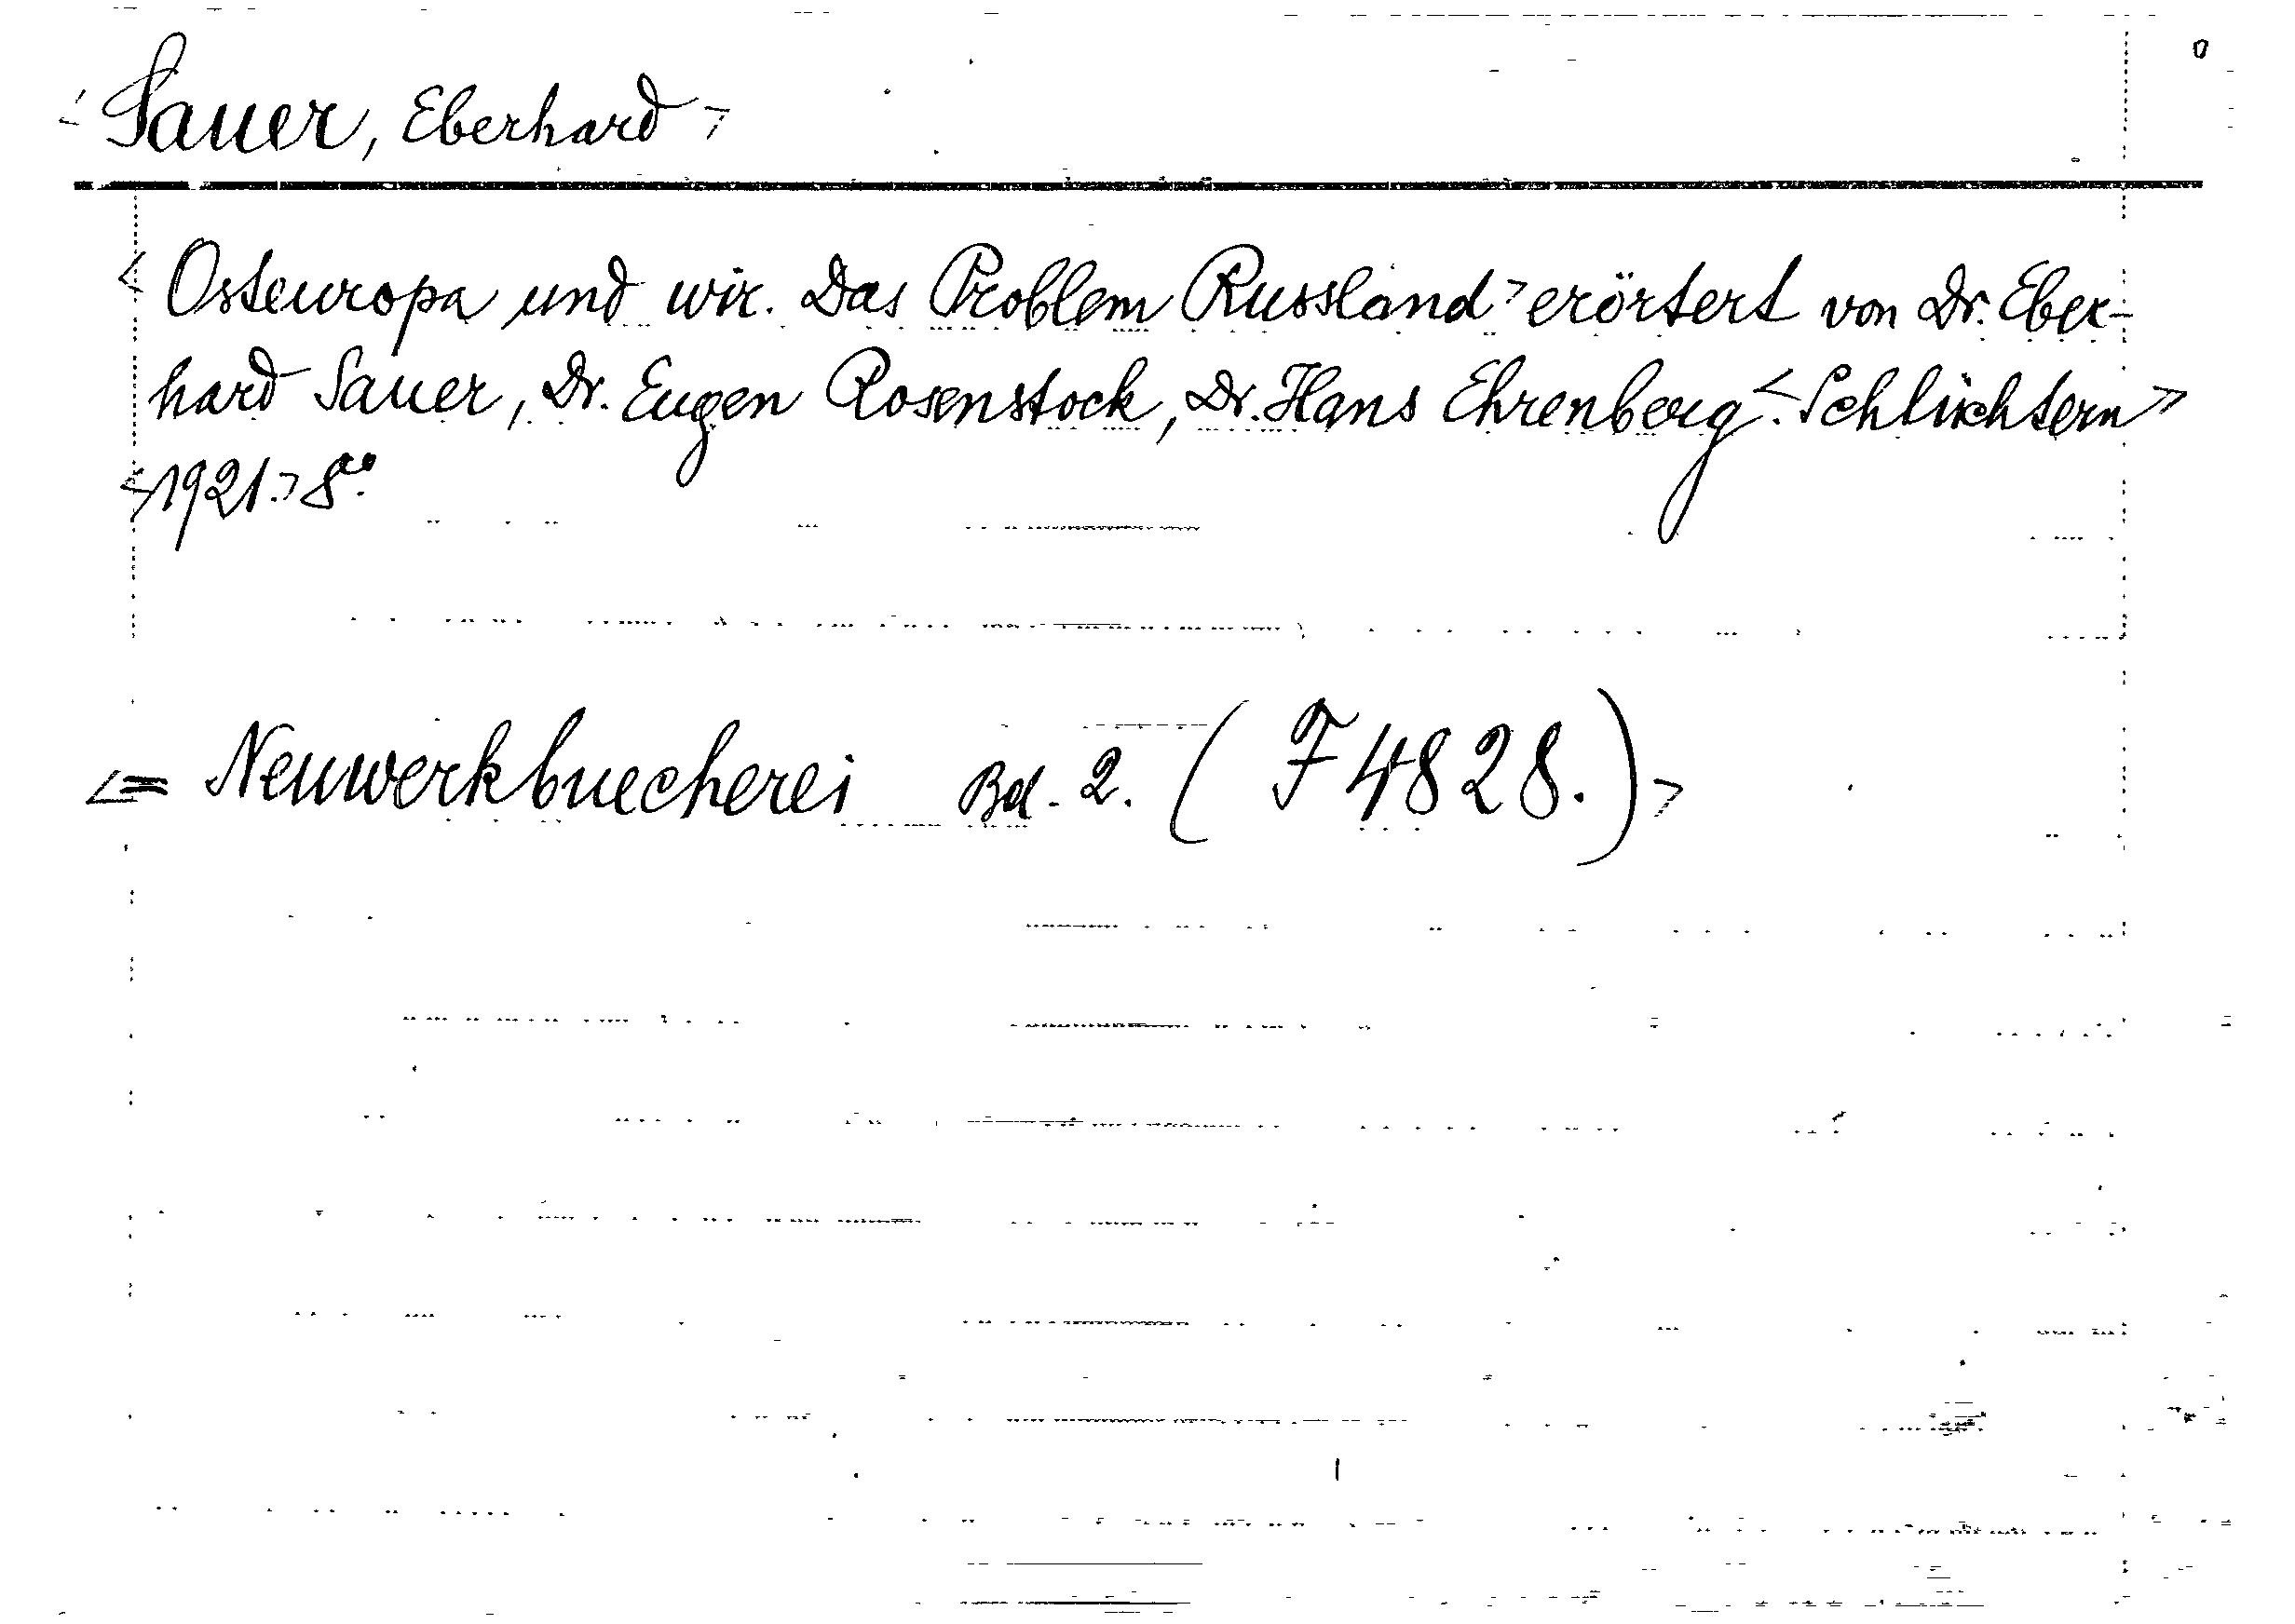 <Sauer, Eberhard>
<Osteuropa und wir. Das Problem Russland> erörtert von Dr. Eber-
hard Sauer, Dr. Eugen Rosenstock, Dr. Hans Ehrenberg.< Schlüchtern>
<1921.> 8°.
<= Neuwerkbuecherei Bd. 2. (F 4828.)>